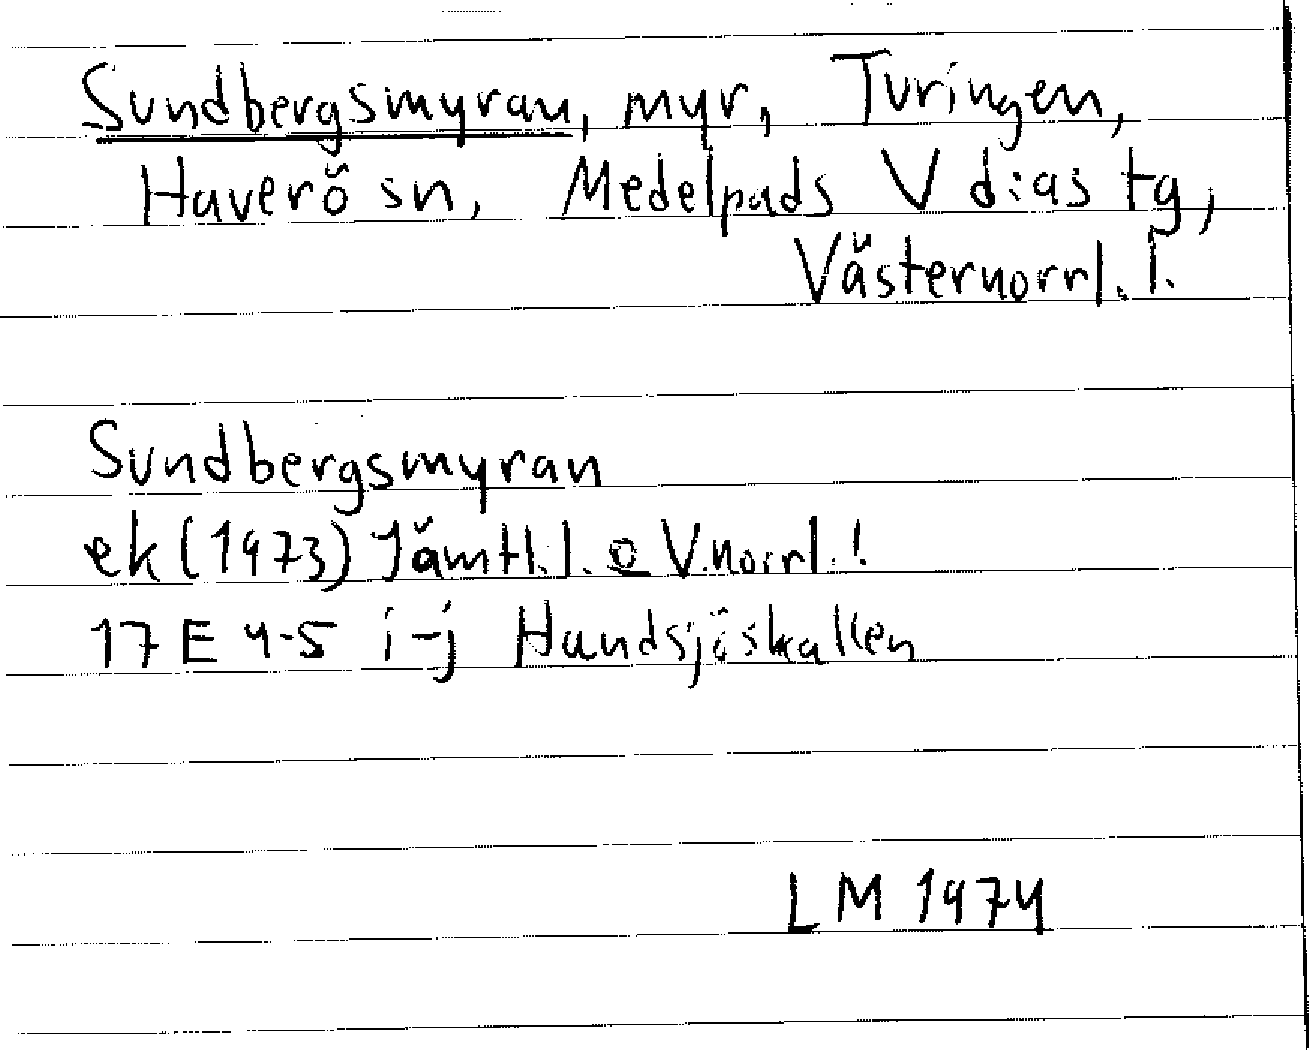 Sundbergsmyran, myr, Turingen,
Haverö sn, Medelpads V d:as tg,
Västernorrl. l.
Sundbergsmyran
ek (1973) Jämtl. l. o V.norrl. l
17 E 4-5 i-j Hundsjöskallen
LM 1974